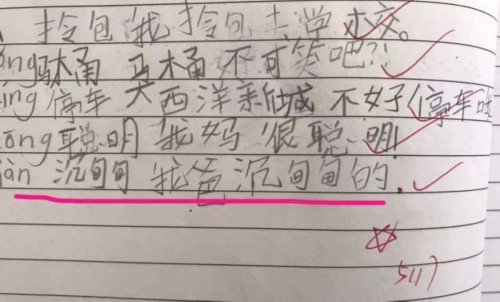 拎包 我拎包去学校。
ǒng 马桶 马桶 不可笑吧?!
íng 停车 大西洋新城 不好停车
ōng 聪明 我妈很聪明!
iàn 沉甸甸 我爸沉甸甸的.